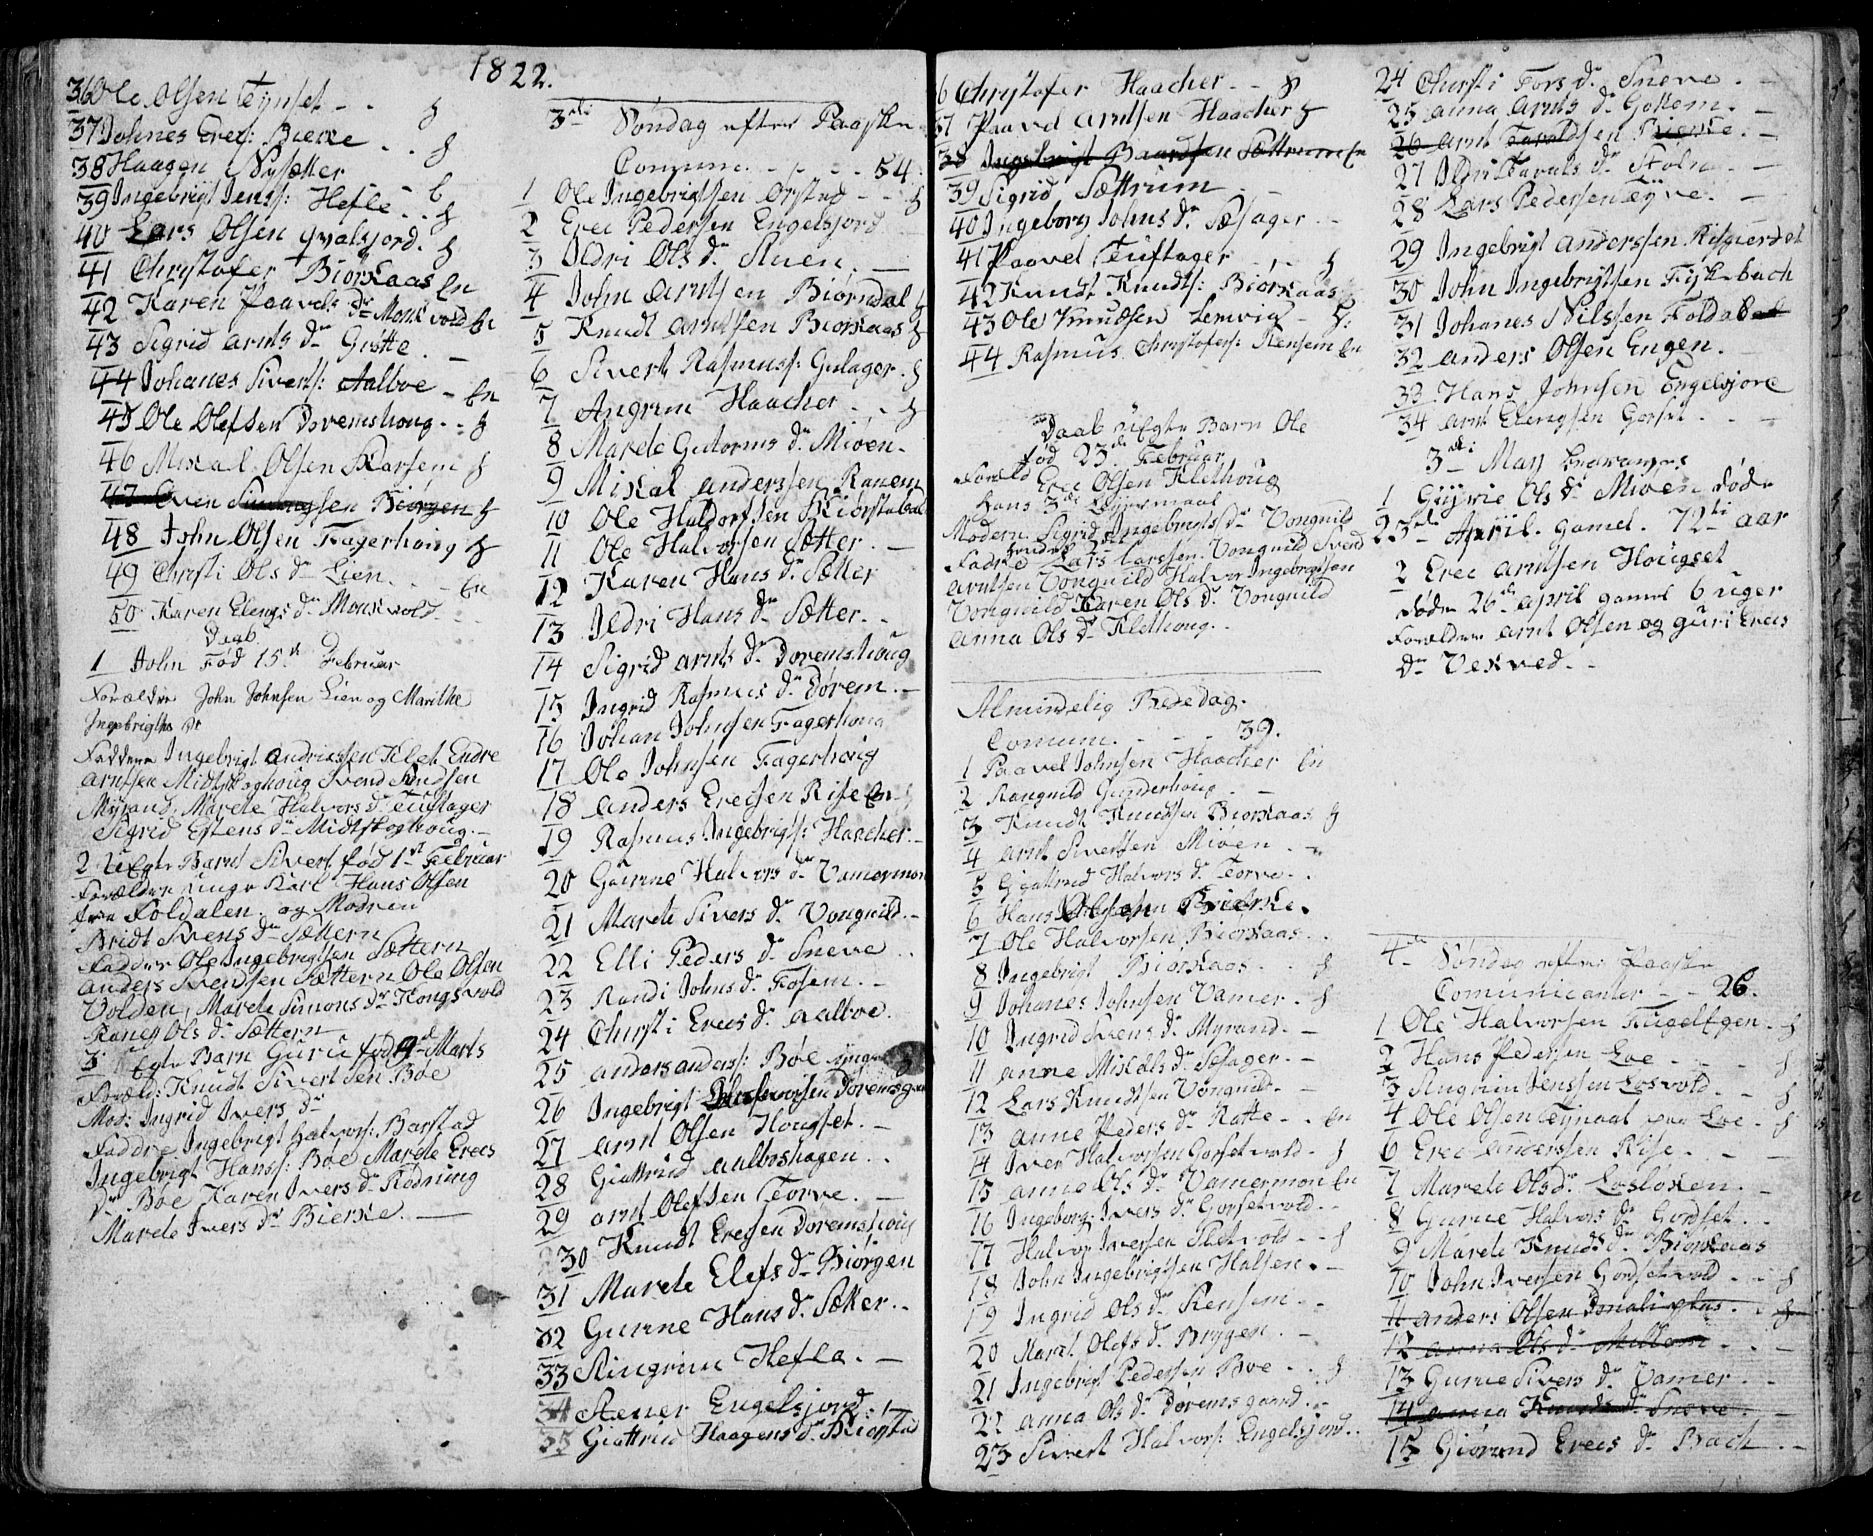 1822.
36 Ole Olsen Tynset - - h
37 Johnes Erec: Bierke - - h
38 Haagen Nysætter
39 Ingebrigt Jenss: Hefle - - h
40 Lars Olsen Qvalsjord. h
41 Chrystofer Biorkaas En
42 Karen Paavels Dr Monsvold En
43 Sigrid Arnts Dr Grøtte. -
44 Johanes Siverts: Aalboe - En
45 Ole Olefsen Doremshoug - - h
46 Mikal Olsen Klarsem h
48 John Olsen Fagerhoug h
49 Christi Ols Dr Lien - - En
50 Karen Elengs Dr Monsvold
Daab
1 John Fød 15de Februar
Forældre John Johnsen Lien og Marithe
Ingebrigts Dr
Faddere Ingebrigt Andriassen Klet Endre
Arntsen Midtskoghoug Svend Knudsen
Myrand Marete Halvors Dr Tuftager
Sigrid Estens Dr Midtskoghoug. -
2 Uegte Barn Sivert fød 1st Februar
Forældre unge Karl Hans Olsen
fra Foldalen og Modren
Bridt Svens Dr Sættern
Fadder Ole Ingebrigtsen Sættern
Anders Svendsen Sættern Ole Olsen
Volden, Marete Simons Dr Kongsvold
Ranei Ols Dr Sættern
3 Uegte Barn Guru fød 9d Marts
Foræld: Knudt Sivertsen Boe
Mod: Ingrid Ivers Dr
Faddre Ingebrigt Halvors: Barstad
Ingebrigt Hanss: Boe Marete Erecs
Dr Boe Karen Ivers Dr Rødning
Marete Ivers Dr Bierke. -
3die Søndag efter Paaske
Commun. - - - 54.
1 Ole Ingebrigtsen Orstad - - h
2 Erec Pedersen Engelsjord
3 Ildri Ols Dr Stuen. -
4 John Arntsen Biørndal h
5 Knudt Arntsen Biorkaas h
6 Sivert Rasmuss: Gulager. h
7 Angrim Haacher - - h
8 Marete Gutorms Dr Mioen.
9 Mikal Anderssen Ranem
10 Ole Haldorssen Skiørstabak
11 Ole Halvorsen Sætter. -
12 Karen Hans Dr Sætter
13 Ildri Hans Dr Sætter. -
14 Sigrid Arnts Dr Doremshoug
15 Ingrid Rasmus Dr Dørem. -
16 Johan Johnsen Fagerhoug
17 Ole Johnsen Fagerhoug
18 Anders Erecsen Rise En
19 Rasmus Ingebrigts: Haacher. -
20 Gurine Halvors Dr Vamermon
21 Marete Sivers Dr Vongnild. -
22 Elli Peders Dr Sneve - -
23 Randi Johns Dr Fosem. -
24 Christi Erecs Dr Aalboe.
25 Anders Anders: Boe
26 Ingebrigt Doremsgaard
27 Arnt Olsen Hougset. -
28 Giøttrud Aalboshagen. -
29 Arnt Olefsen Torve. -
30 Knudt Erecsen Doremshoug
31 Marete Elefs Dr Biorgen
32 Gurine Hans Dr Sætter. -
33 Stingrim Hefle. -
34 Stener Engelsjord
35 Giøttrud Haagens Dr Biorstad
6 Chrystofer Haacher - - h
37 Paavel Arntsen Haacher h
38 Ingebrigt Baardsen Sættrum En
39 Sigrid Sættrum - -
40 Ingeborg Johns Dr Sæsager. -
41 Paavel Tuftager - - - h
42 Knudt Knudts: Biorkaas h
43 Ole Knudsen Lenvig - h:
44 Rasmus Chrystofers: Stensem En
Daab Uegte Barn Ole
fød 23de Februar
Foræld Erec Olsen Klethoug
hans 3de Leyermaal
Modern Sigrid Ingebrigts Dr Vongnild
hendes 2det
Fadre Lars Larssen Vongnild Svend
Arntsen Vongnild Halvor Ingebrigtsen
Vongnild Karen Ols Dr Vongnild
Anna Ols Dr Klethoug. -
Almindelig Bededag.
Comum. - - - 39.
1 Paavel Johnsen Haacher En
2 Rangnild Gunderhoug. - -
3 Knudt Knudtsen Biorkaas h
4 Arnt Sivertsen Mioen. -
5 Giøttrud Halvors Dr Torve. -
6 Hans Olsen Bierke.
7 Ole Halvorsen Biorkaas. -
8 Ingebrigt Biorkaas. - h
9 Johanes Johnsen Vamer. h
10 Ingrid Svens Dr Myrand. -
11 Anne Mikals Dr Sæsager. -
12 Lars Knudtsen Vongnild. -
13 Anne Peders Dr Ratte - - En
14 Iver Halvorsen Gorsetvold - h
15 Anne Ols Dr Vamermon En
16 Ingeborg Ivers Dr Gorsetvold. -
17 Halvor Iversen Sletvold - - h
18 John Ingebrigtsen Halsen. -
19 Ingrid Ols Dr Stensem. -
20 Marit Olefs Dr Brygen. -
21 Ingebrigt Pedersen Boe. - h
22 Anna Ols Dr Doremsgaard. -
23 Sivert Halvors: Engelsjord. -
24 Christi Fors Dr Sneve. -
25 Anna Arnts Dr Gottem. -
26 Arnt Bierke. -
27 Ildri Dr Stoln - -
28 Lars Pedersen Tøyve. -
29 Ingebrigt Anderssen Risgierdet
30 John Ingebrigtsen Tyskebach
31 Johanes Nilssen Foldal
32 Anders Olsen Engen.
33 Hans Johnsen Engelsjord
34 Arnt Elengsen Gorset. -
3die May
1 Gyrie Ols Dr Mioen døde
23de April. gamel. 72ti aar
2 Erec Arntsen Hougset
døde 26de April gamel 6 uger
Forældre Arnt Olsen og Guri Erecs
Dr Vekved. -
4de Søndag efter Paaske
Comunicanter - - 26.
1 Ole Halvorsen Fugelegen. h
2 Hans Pedersen Loe - - - h
3 Stingrim Jenssen Losvold. - h
4 Ole Olsen paa Loe - h
6 Erec Anderssen Rise. - -
7 Marete Ols Dr Losløken. -
8 Gurine Halvors Dr Gorset. -
9 Marete Knuds Dr Biorkaas
10 John Iversen Gorsetvold - - h
11 Anders Olsen
12 Anna Ols Dr
13 Gurine Sivers Dr Vamer. -
14 Anna Knuds Dr Sneve. -
15 Giørand Erecs Dr Bach. -